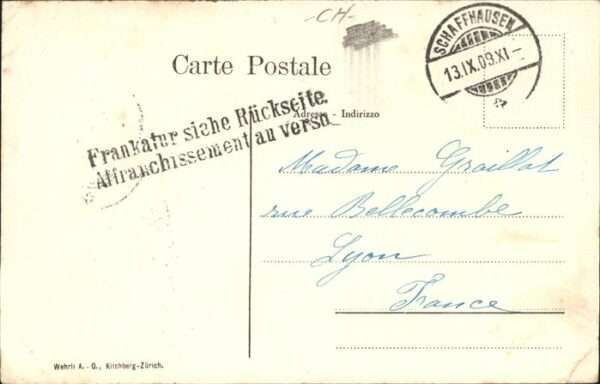 CH-
SCHAFFHAUSEN
13.IX.09.XI-
Carte Postale
Adresse - Indirizzo
Frankatur siehe Rückseite.
Affranchissement au verso.
Madame Graillot
rue Bellecombe
Lyon
France
Wehrli A.-G., Kilchberg-Zürich.